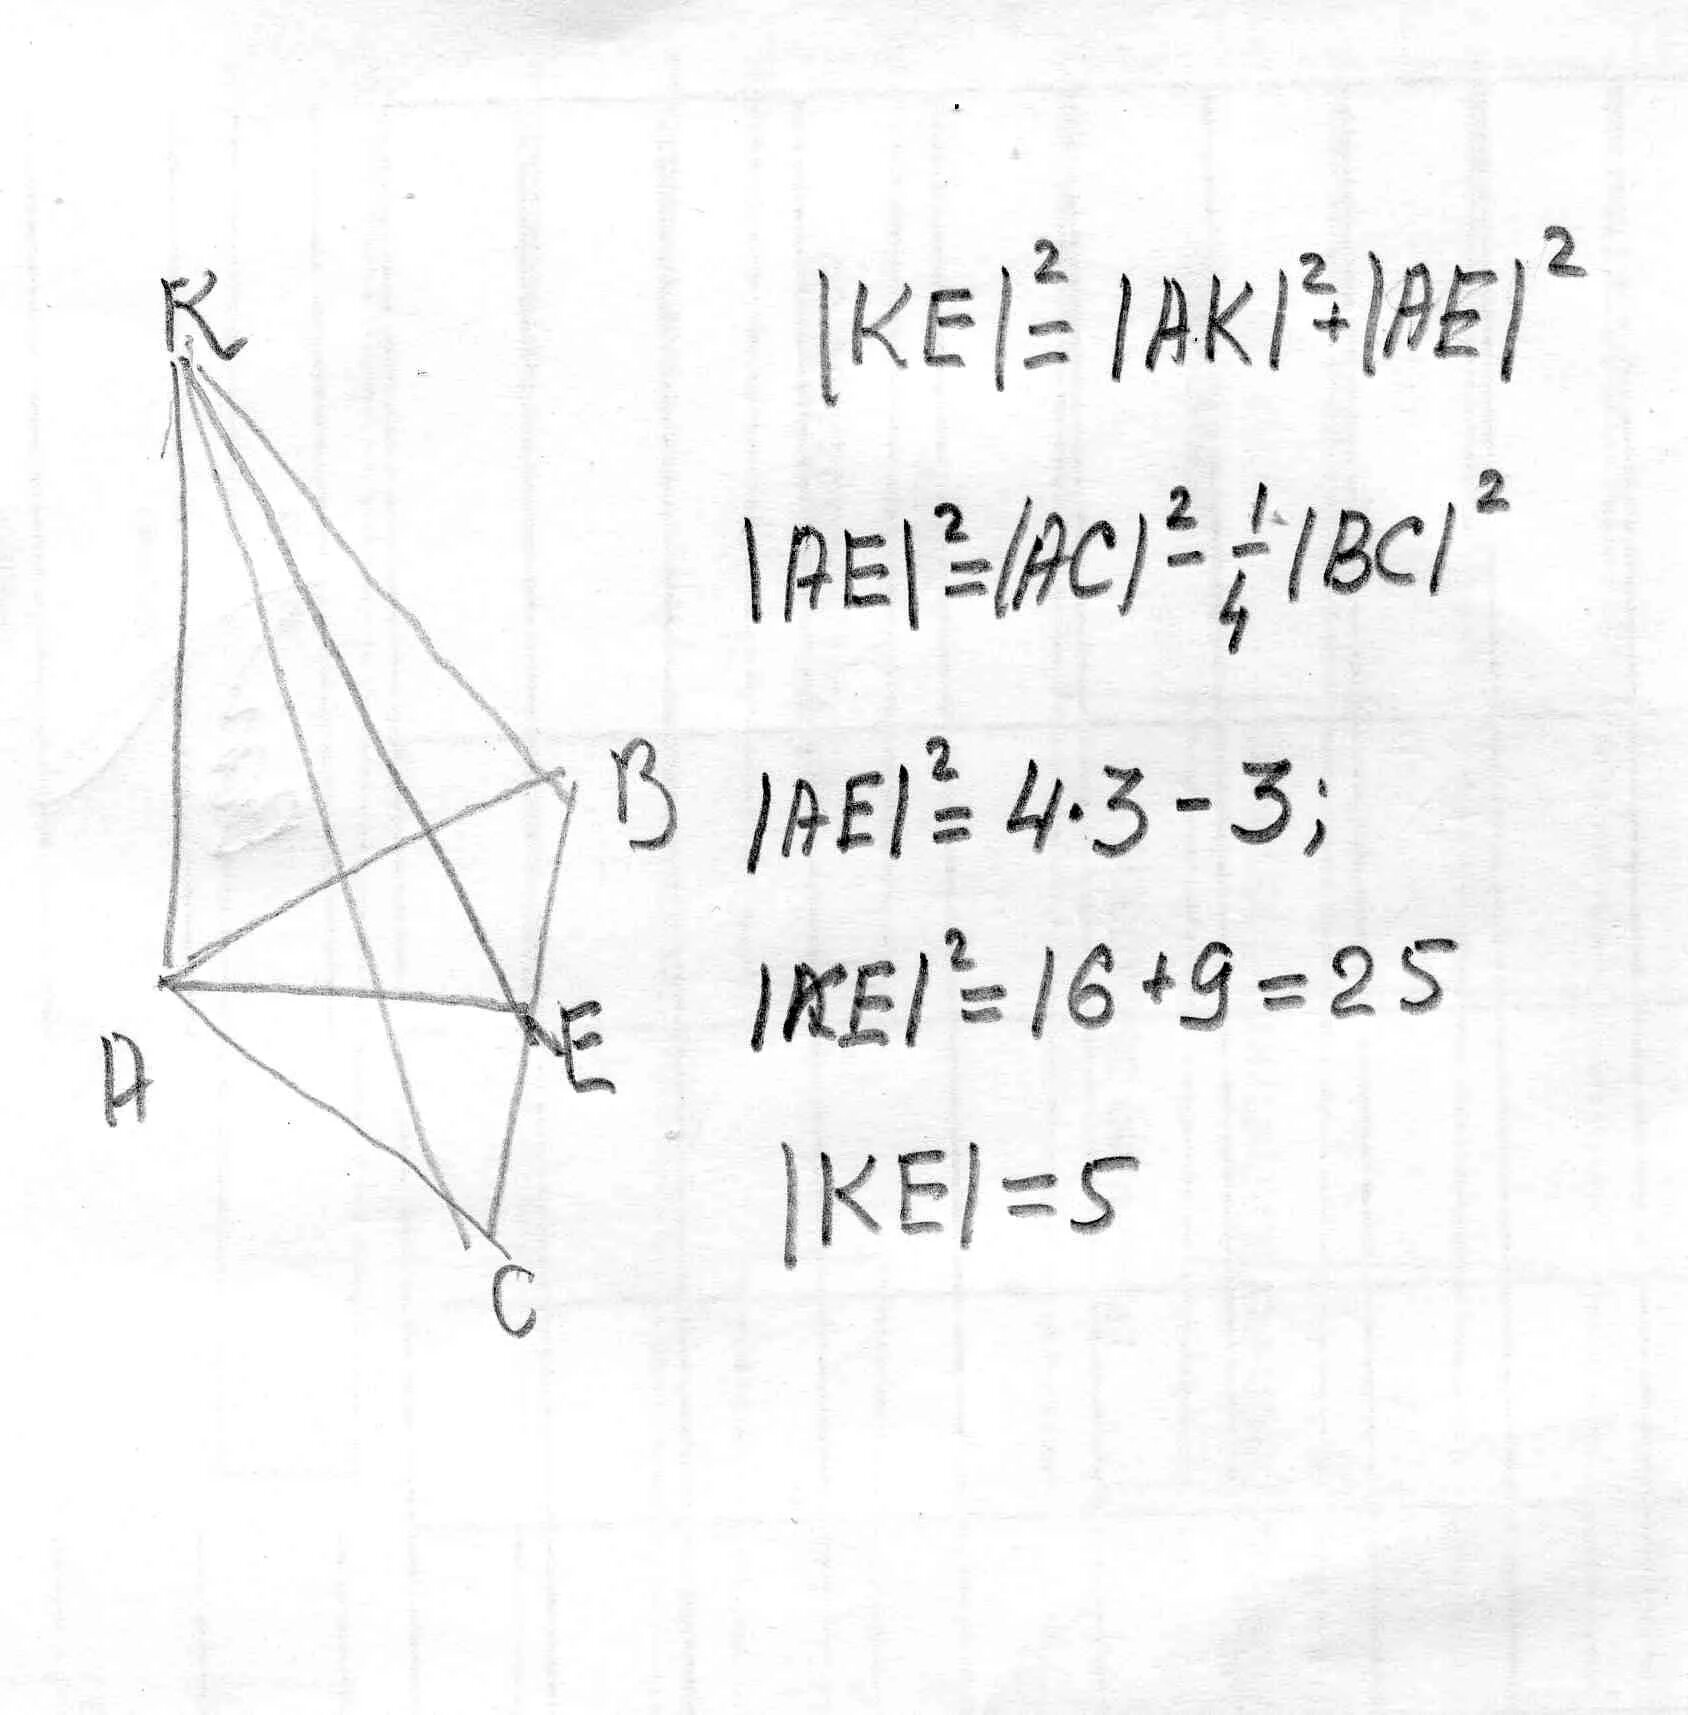 K
|KE|² = |AK|² + |AE|²
|AE|² = |AC|² - 1/4 |BC|²
B
|AE|² = 4·3 - 3;
|KE|² = 16 + 9 = 25
E
A
|KE| = 5
C